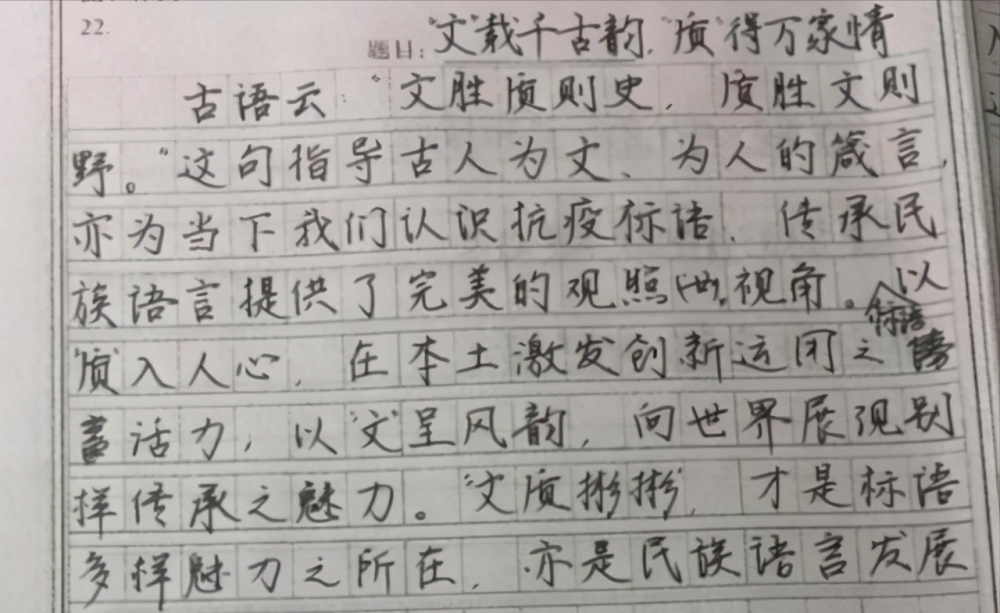 22.
题目:"文"载千古韵,"质"得万家情
古语云:"文胜质则史,质胜文则
野。"这句指导古人为文、为人的箴言,
亦为当下我们认识抗疫标语、传承民
族语言提供了完美的观照视角。以
"质"入人心,在本土激发创新运用之标语
活力,以"文"呈风韵,向世界展现别
样传承之魅力。"文质彬彬",才是标语
多样魅力之所在,亦是民族语言发展